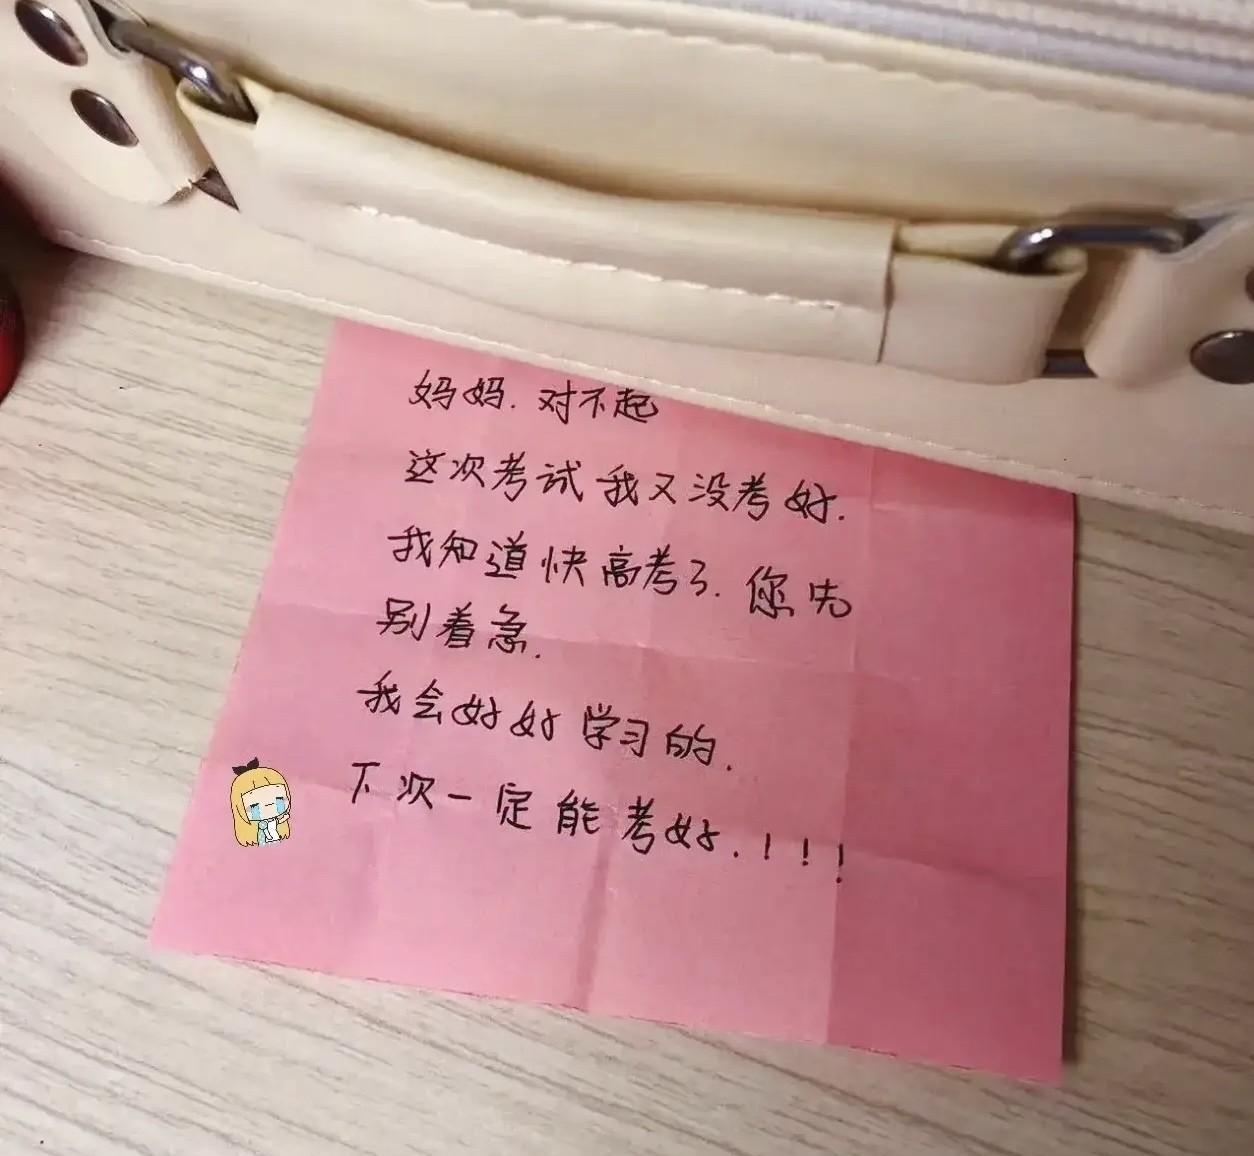 妈妈.对不起
这次考试我又没考好.
我知道快高考了.您先
别着急.
我会好好学习的.
下次一定能考好.!!!